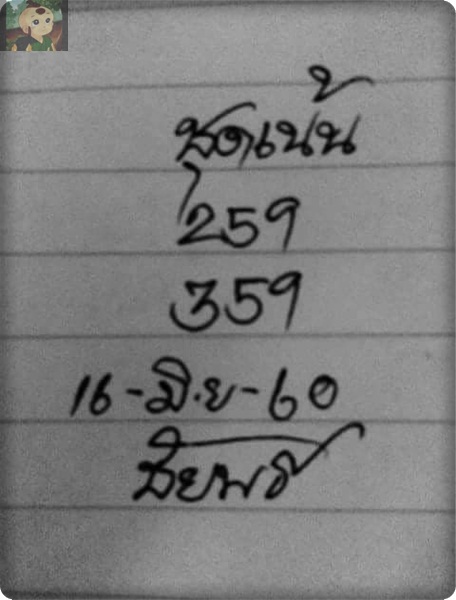 ชุดเน้น
259
359
16-มิ.ย-60
ชัยพร